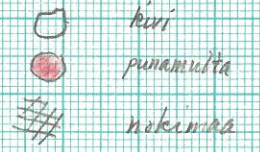 kivi
punamulta
nokimaa